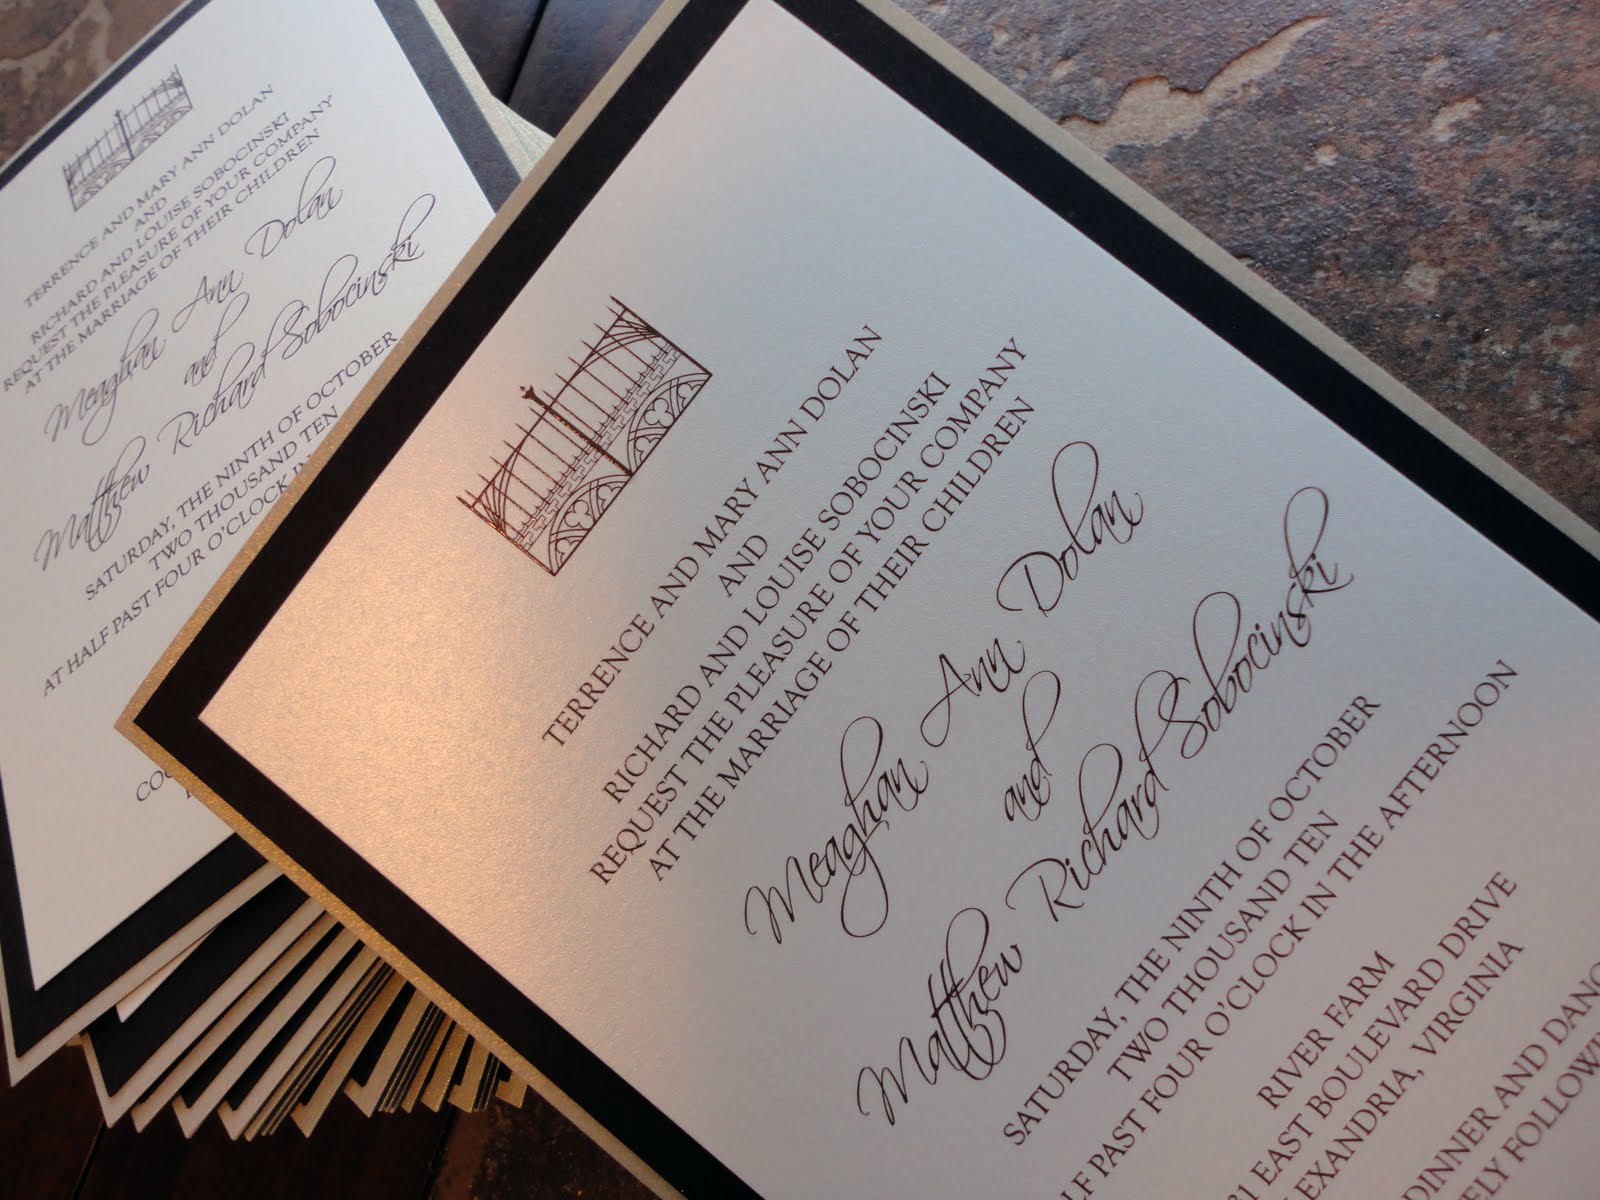 TERRENCE AND MARY ANN DOLAN
AND
RICHARD AND LOUISE SOBOCINSKI
REQUEST THE PLEASURE OF YOUR COMPANY
AT THE MARRIAGE OF THEIR CHILDREN
Meaghan Ann Dolan
and
Matthew Richard Sobocinski
SATURDAY, THE NINTH OF OCTOBER
TWO THOUSAND TEN
AT HALF PAST FOUR O'CLOCK IN
TERRENCE AND MARY ANN DOLAN
AND
RICHARD AND LOUISE SOBOCINSKI
REQUEST THE PLEASURE OF YOUR COMPANY
AT THE MARRIAGE OF THEIR CHILDREN
Meaghan Ann Dolan
and
Matthew Richard Sobocinski
SATURDAY, THE NINTH OF OCTOBER
TWO THOUSAND TEN
PAST FOUR O'CLOCK IN THE AFTERNOON
RIVER FARM
EAST BOULEVARD DRIVE
VIRGINIA
DINNER AND